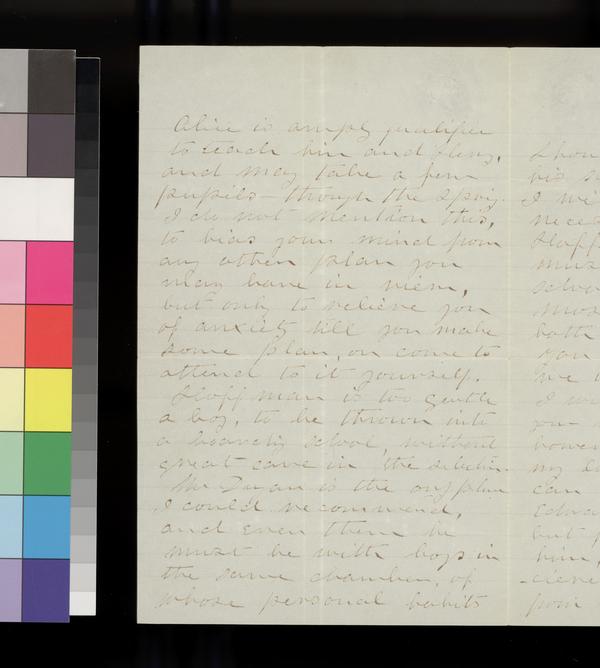 Alice is amply qualified
to teach him and Jenny,
and may take a few
pupils - through the Spring.
I do not mention this,
to bias your mind from
any other plan you
may have in view,
but only to relieve you
of anxiety till you make
some plan, or come to
attend to it yourself.
Hoffman is too gentle
a boy, to be thrown into
a boarding school, without
great care in the selection.
is the only place
I could recommend,
and even there he
must be with boys in
the same chamber, of
whose personal habits
Shou
his s
I wi
neces
Hoff
must
schoo
most
both
you
me
I wo
you
howev
my
can
Edwa
but
him,
-cieve
from